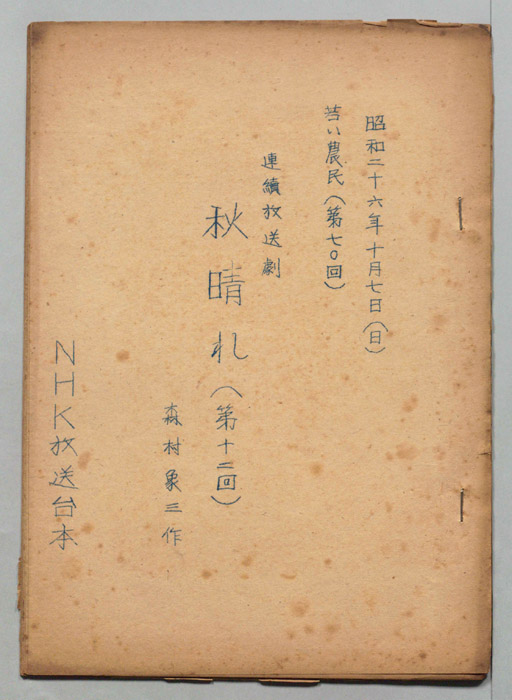 昭和二十六年十月七日(日)
若い農民(第七〇回)
連續放送劇
秋晴れ(第十二回)
森村象三作
NHK放送台本